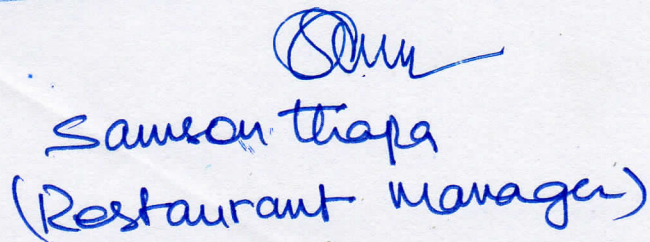 Samson Thapa
(Restaurant Manager)